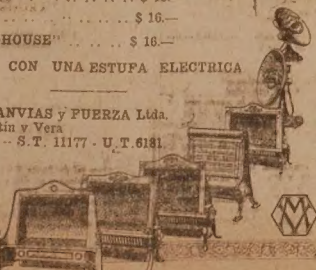 $ 16.—
HOUSE" .. .. .. $ 16.—
CON UNA ESTUFA ELECTRICA
ANVIAS y PUERZA Ltda.
tín y Vera
.. S.T. 11177 - U.T. 6181